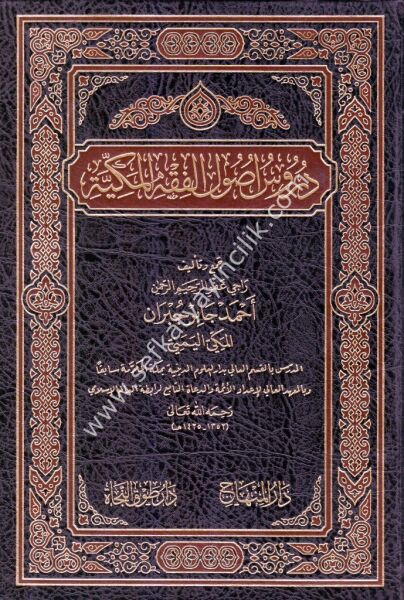 دروس أصول الفقه المكية
جمع وتأليف
راجي عفو الرحيم الرحمن
أحمد جابر جبران
المكي اليمني
المدرس بالقسم العالي بدار العلوم الدينية بمكة المكرمة سابقا
وبالمعهد العالي لإعداد الأئمة والدعاة التابع لرابطة العالم الإسلامي
رحمه الله تعالى
(١٣٥٢-١٤٢٥هـ)
دار المنهاج
دار طوق النجاة
www.refikayayincilik.com